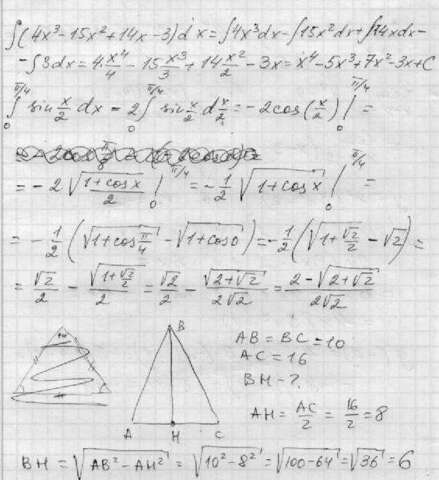 ∫(4x³-15x²+14x-3)dx = ∫4x³dx-∫15x²dx+∫14xdx-
-∫3dx = 4·x⁴/4 - 15·x³/3 + 14·x²/2 - 3x = x⁴-5x³+7x²-3x+C
∫₀^(π/4) sin x/2 dx = 2∫₀^(π/4) sin x/2 d x/2 = -2cos(x/2)|₀^(π/4) =
= -2√((1+cosx)/2)|₀^(π/4) = -1/2 √(1+cosx)|₀^(π/4) =
= -1/2(√(1+cos π/4) - √(1+cos0)) = -1/2(√(1+√2/2) - √2) =
= √2/2 - √(1+√2/2)/2 = √2/2 - √(2+√2)/(2√2) = (2-√(2+√2))/(2√2)
B
A H C
AB = BC = 10
AC = 16
BH - ?
AH = AC/2 = 16/2 = 8
BH = √(AB²-AH²) = √(10²-8²) = √(100-64) = √36 = 6